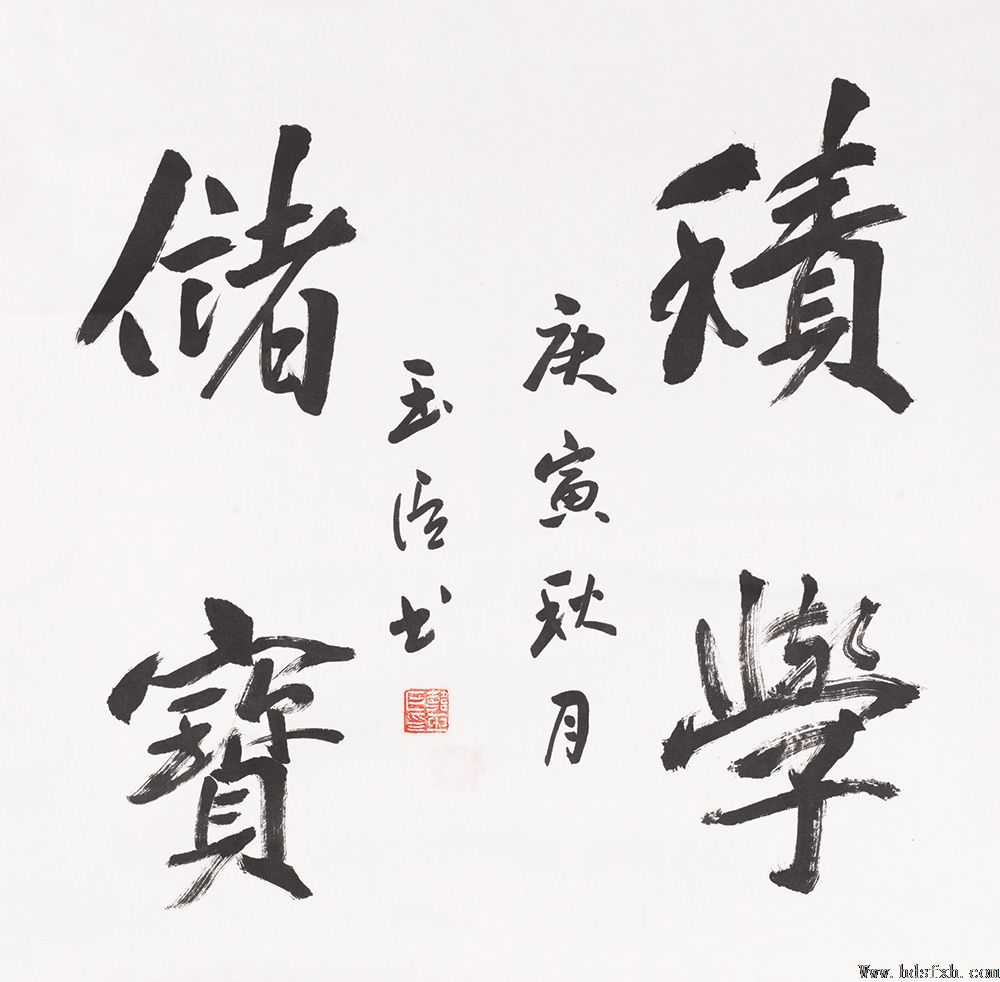 積學
儲寶
庚寅秋月
玉臣书
Www.bdsfxh.com